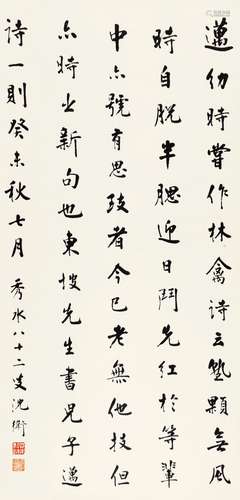 邁幼時嘗作林禽詩云熟顆無風
時自脫半腮迎日鬥先紅於等輩
中亦號有思致者今已老無他技但
亦時出新句也東坡先生書兒子邁
詩一則癸未秋七月 秀水八十二叟沈衛